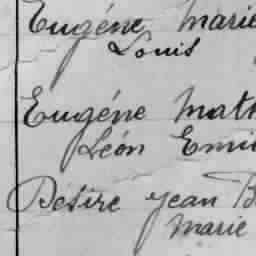 Eugéne Marie
Louis
Eugéne Math
Léon Emi
Désire Jean B
Marie